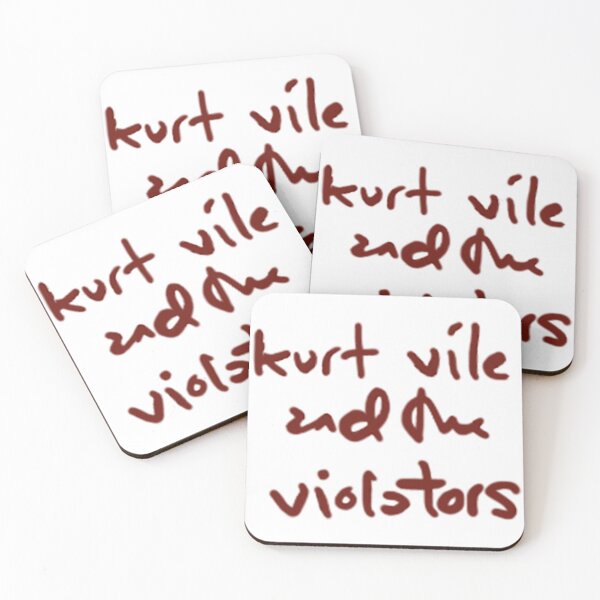 kurt vile
and the
kurt vile
and the
kurt vile
and the
kurt vile
and the
violators